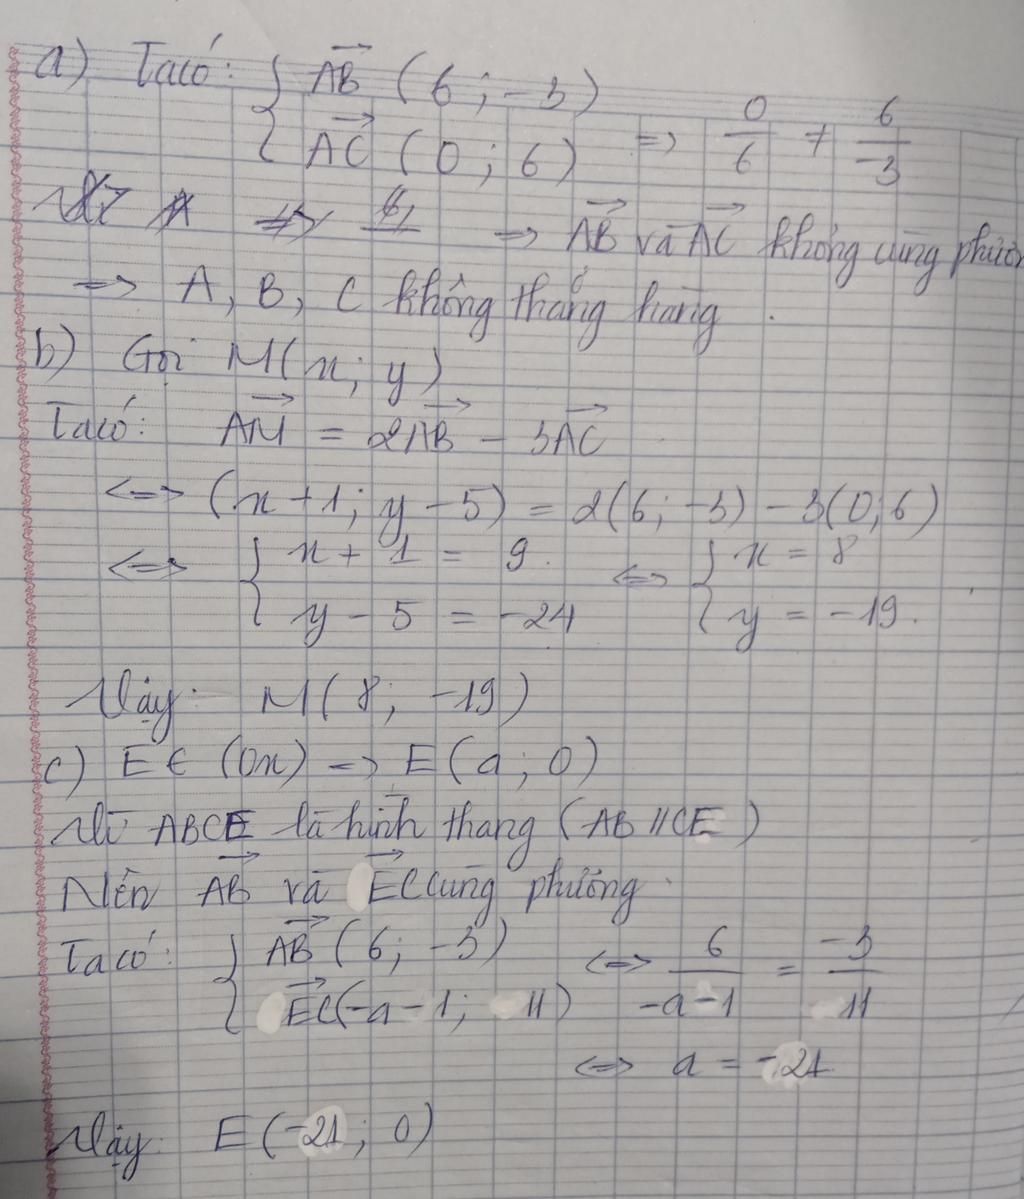 a) Ta có: { AB→ (6 ; -3)
{ AC→ (0 ; 6) => 0/6 ≠ 6/-3
=> AB→ và AC→ không cùng phươn
=> A, B, C không thẳng hàng.
b) Gọi M(x; y)
Ta có: AM→ = 2AB→ - 3AC→
<=> (x+1; y-5) = 2(6; -3) - 3(0; 6)
<=> { x + 1 = 9 <=> { x = 8
{ y - 5 = -24 { y = -19.
Vậy: M(8; -19)
c) E ∈ (Ox) => E(a; 0)
Vì ABCE là hình thang (AB // CE)
Nên AB→ và EC→ cùng phương
Ta có: { AB→ (6; -3) <=> 6/-a-1 = -3/11
{ EC→ (-a-1; 11)
<=> a = -21
Vậy: E(-21; 0)